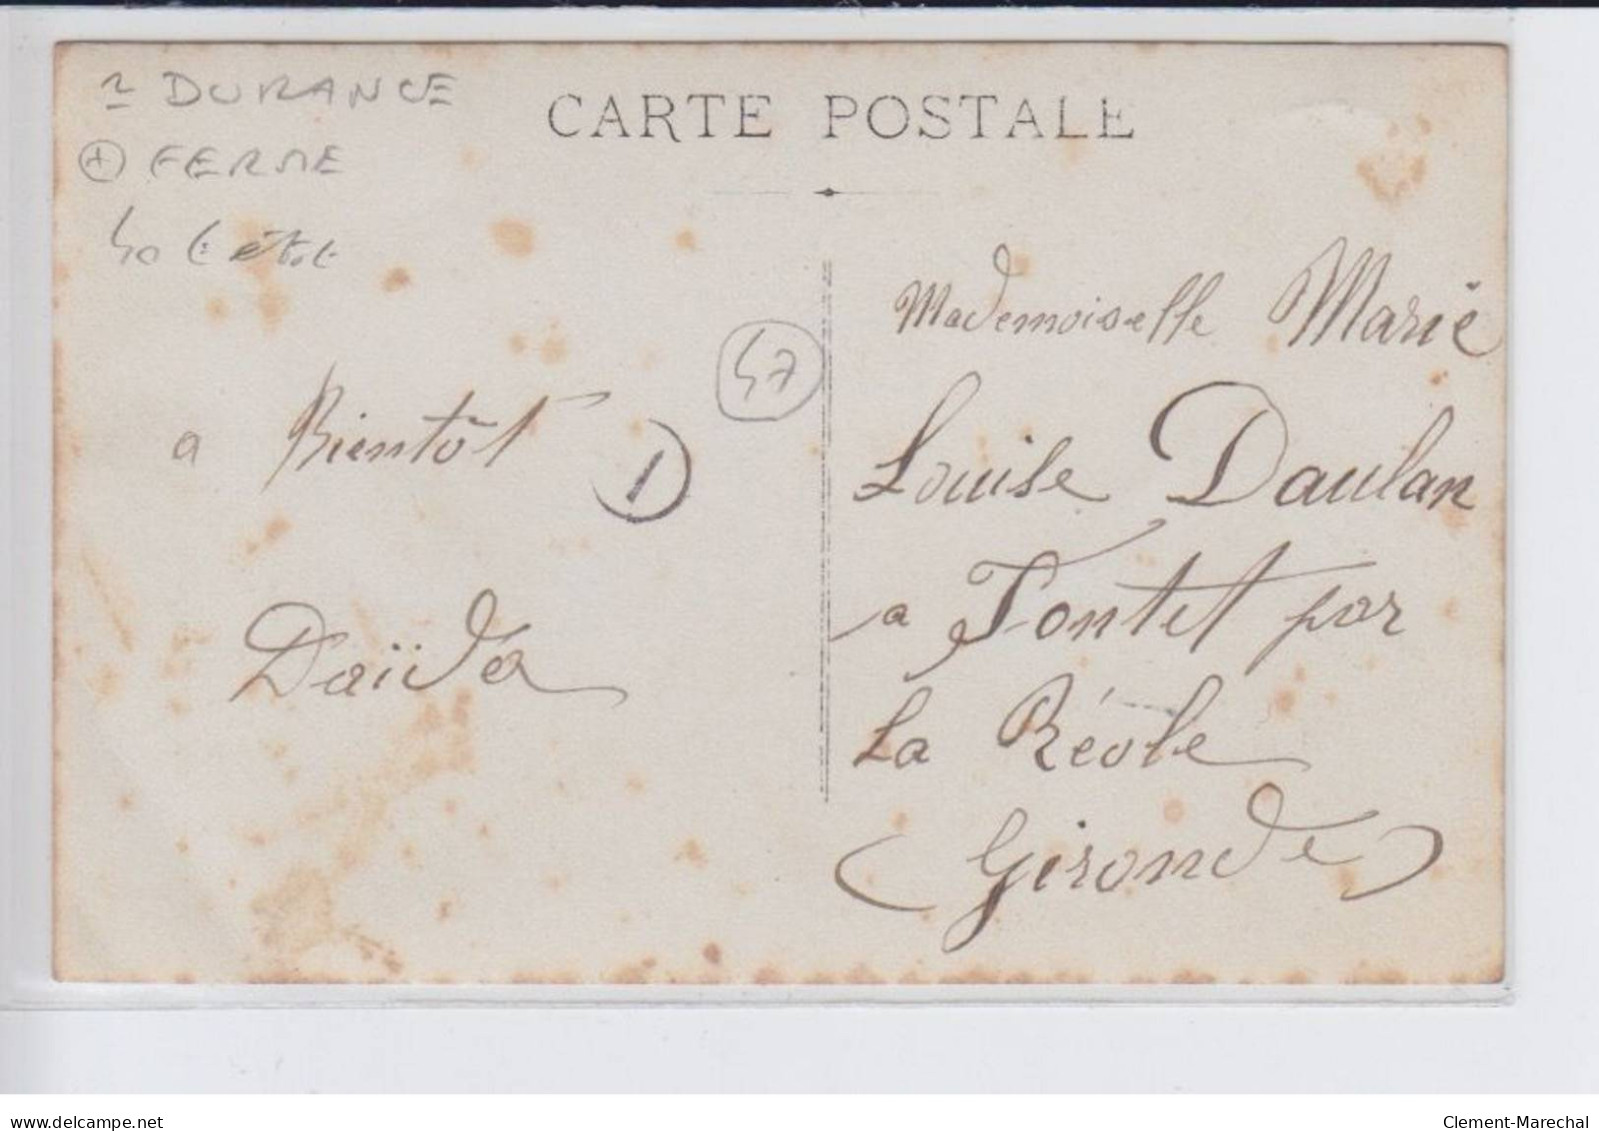 DURANCE
FERME
CARTE POSTALE
47
a Bientôt
1
Daïda
Mademoiselle Marie
Louise Daulan
a Fontet par
La Réole
(Gironde)
delcampe.net
Clement-Marechal